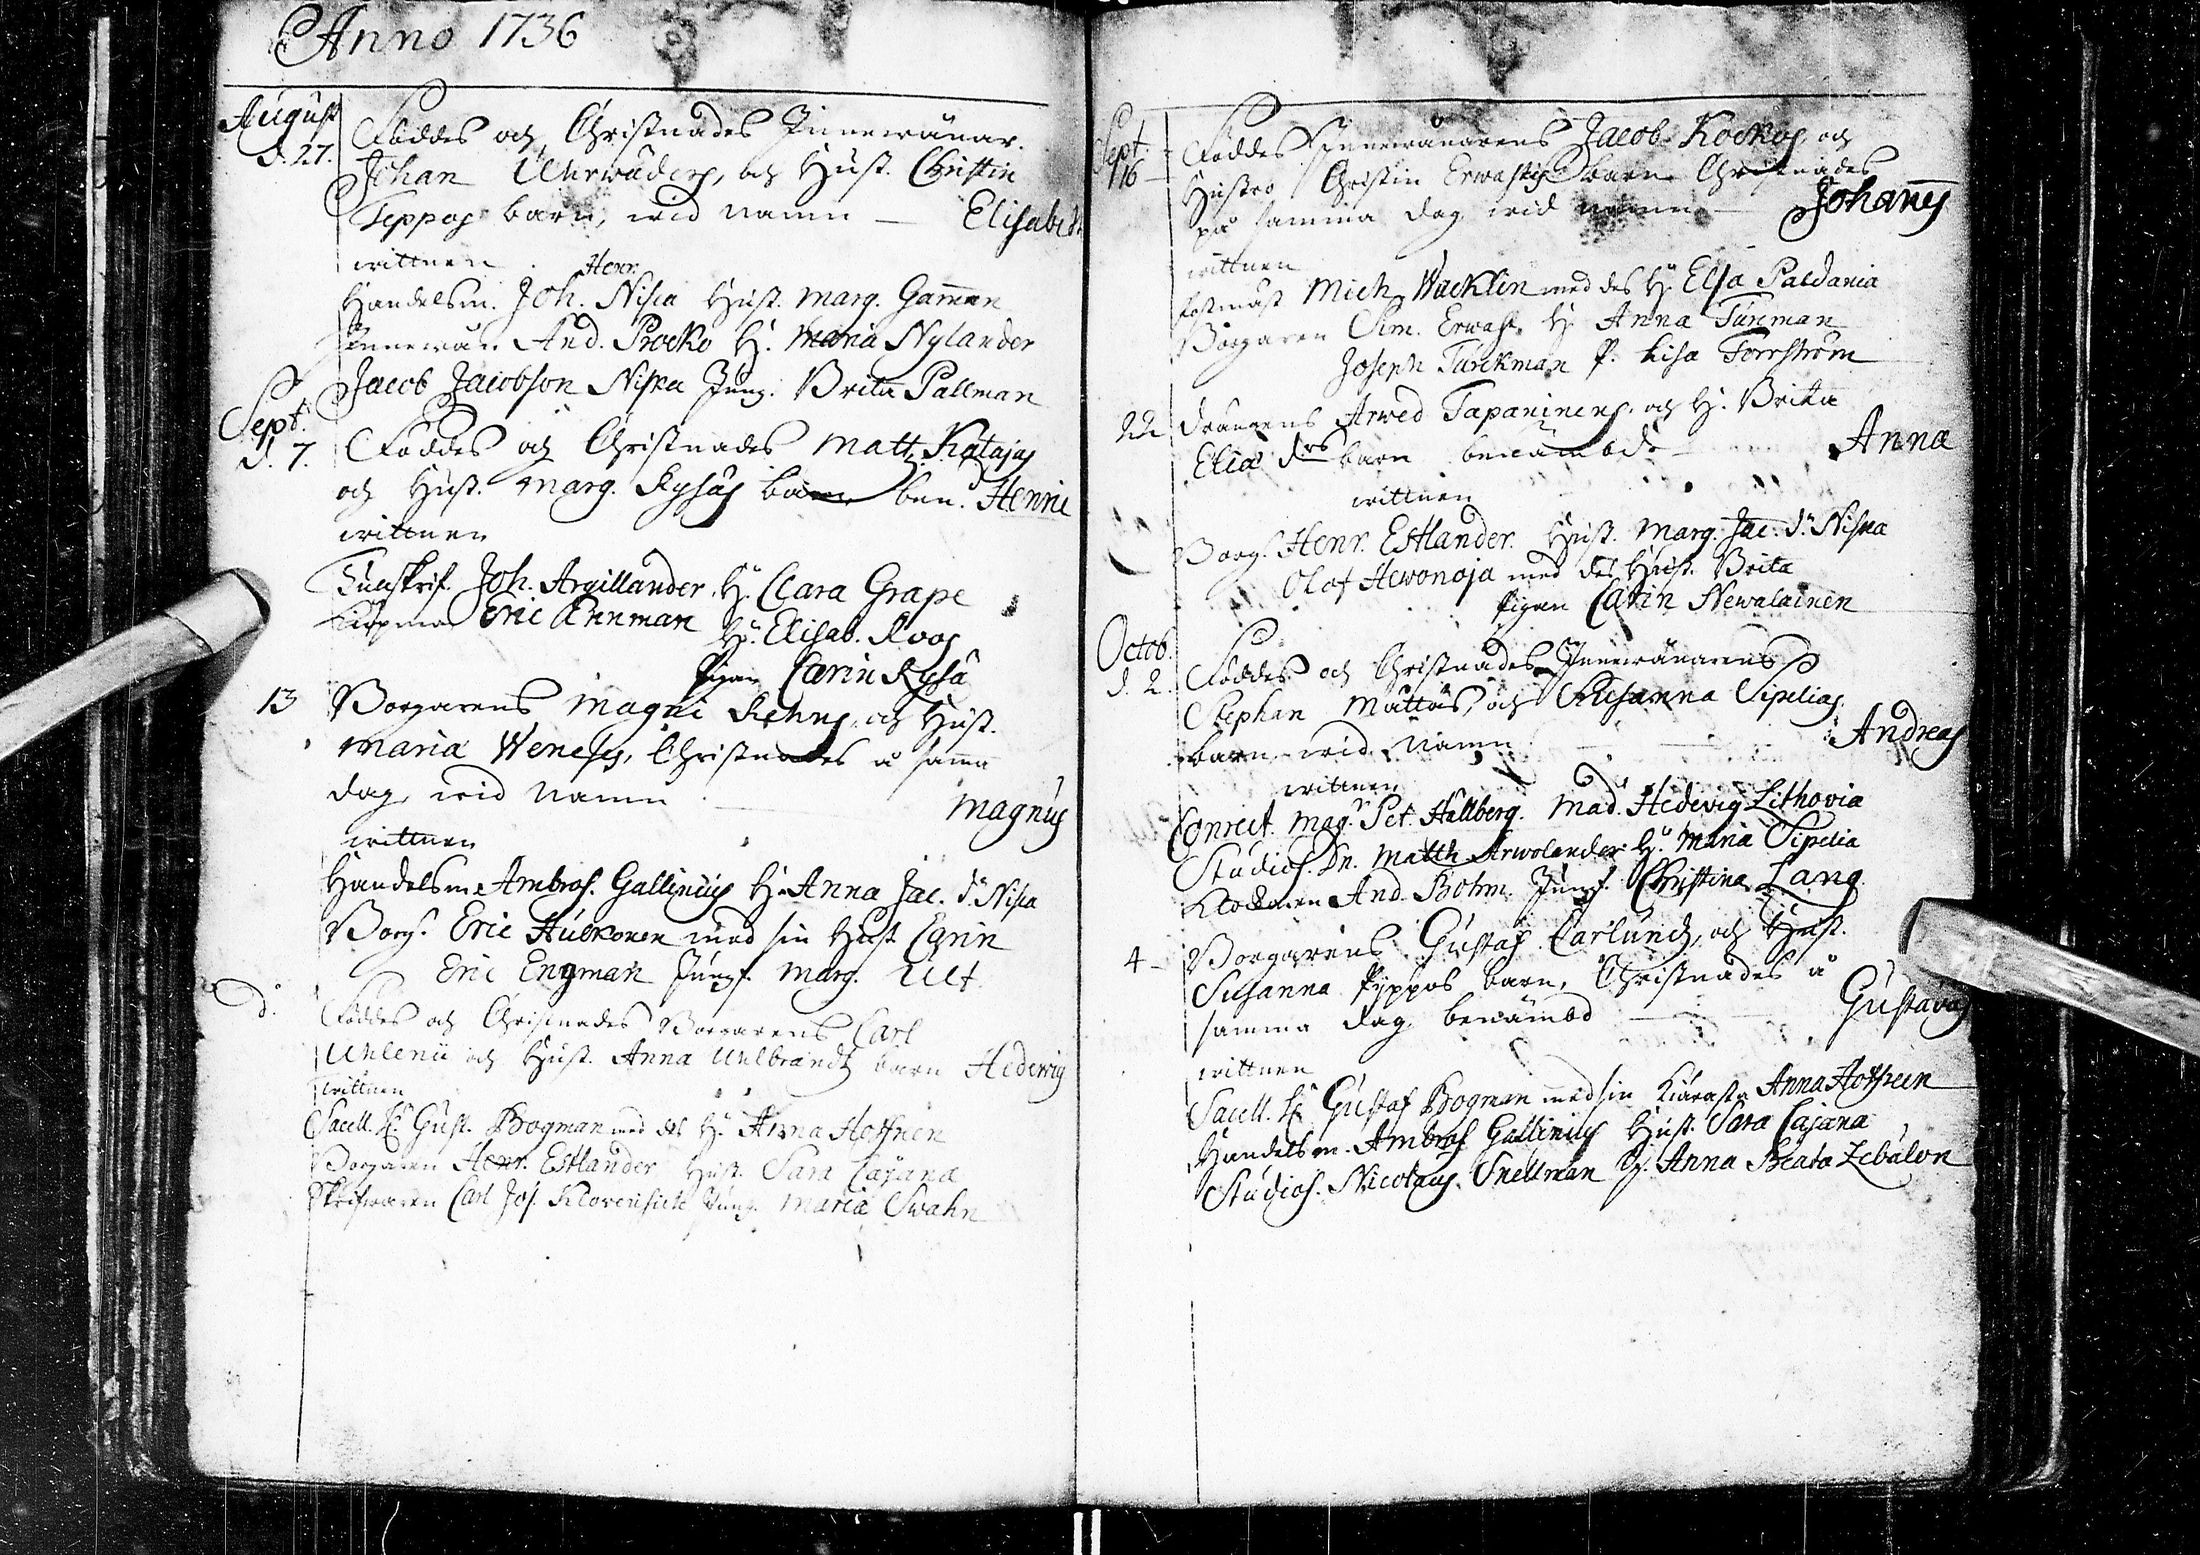 Anno 1736
August
d. 27.
Föddes och Christnades Innewånar.
Johan Uhrwäders, och Hust. Christin
Teppos barn, wid namn — Elisabet
wittnen Henr.
Handelsm. Joh. Niska Hust. Marg. Gamman
Innewån. And. Procko H. Maria Nylander
Jacob Jacobson Niska Jung. Brita Pallman
Sept.
d. 7.
Föddes och Christnades Matt. Katajas
och Hust. Marg. Kysäs barn ben.d Henric
wittnen
Tullskrif. Joh. Argillander. H. Clara Grape
Köpma Eric Ahnman H. Elisab. Roos
Pigan Carin Kysä
13
Borgarens Magni Rehns, och Hust.
Maria Weneses, Christnades å samma
dag, wid namn — Magnus
wittnen
Handelsm. Ambros. Gallinius H. Anna Jac. dr Niska
Borg. Eric Huckonen med sin Hust Carin
Eric Engman Jungf. Marg. Ult
d.
Föddes och Christnades Borgarens Carl
Uhlenii och Hust. Anna Uhlbrandz barn Hedewig
wittnen
Sacell. H. Gust. Bogman med des H. Anna Hoffren
Borgaren Henr. Estlander Hust. Sara Cajana
Skrifwaren Carl Jos. Jung. Maria Swahn
Sept.
16 —
Föddes Innewånarens Jacob Kockos, och
Hustro Christin Erwastis barn Christnades
på samma dag wid namn — Johannes
wittnen
Postmäst Mich. Wacklin med des H. Elsa Paldania
Borgaren Sim. Erwast. H. Anna Turcman
Joseph Turckman P. Lisa Forrström
22
Drängens Arwed Tapaninens, och H. Brita
Eliæ drs barn benämbde — Anna
wittnen
Borg. Henr. Estlander. Hust. Marg. Jac. dr Niska
Olof Hewonoja med des Hust. Brita
Pigan Carin Newalainen
Octob.
d. 2.
Föddes och Christnades Innewånarens
Stephan Mattas, och Susanna Sipelias
barn wid Namn — Andreas
wittnen
Conrect. Mag. Pet. Hallberg. Mad. Hedevig Lithovia
Studios. Dn. Matth. Arwolander H. Maria Sipelia
Klockaren And. Bohm. Jungf. Christina Lang.
4 —
Borgarens Gustaf Carlundz, och Hust.
Susanna Pyppos barn, Christnades å
samma dag, benämbd — Gustavus
wittnen
Sacell. H. Gustaf Bogman med sin Kiärasta Anna Hoffreen
Handelsm. Ambros Gallinius Hust. Sara Cajana
Studios. Nicolaus Snellman J. Anna Beata Zebulon